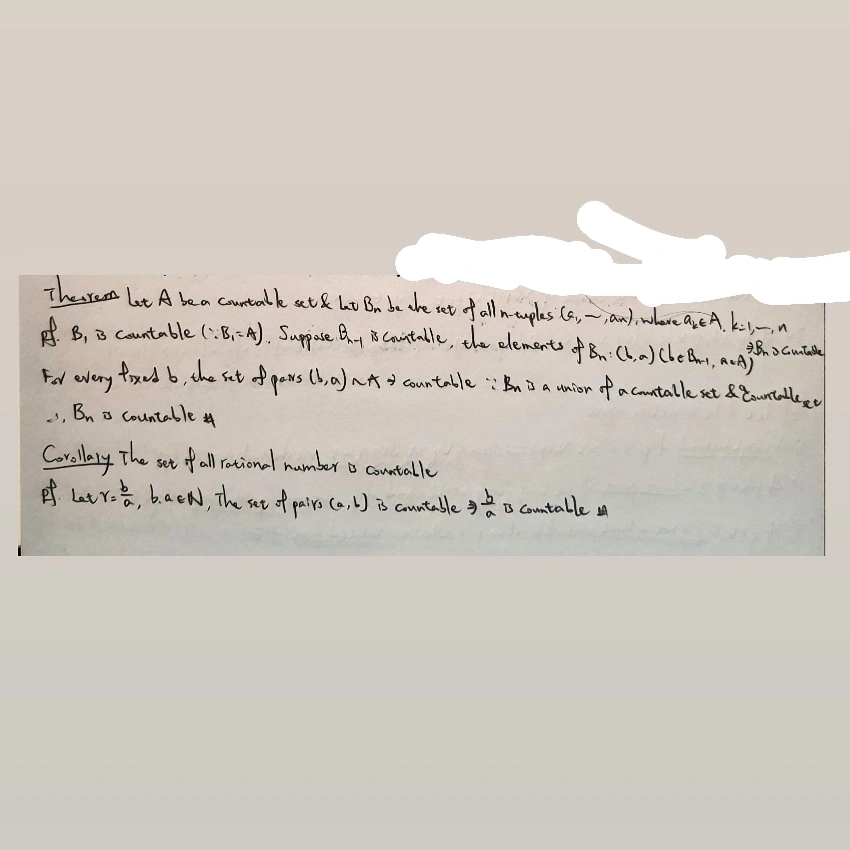 Theorem Let A be a countable set & Let Bn be the set of all n-tuples (a₁, ⋯, an), where aₖ∈A, k=1,⋯,n
⇒Bn is countable
pf. B₁ is countable (∵B₁=A). Suppose Bn-1 is countable, the elements of Bn: (b,a) (b∈Bn-1, a∈A)
For every fixed b, the set of pairs (b,a) ~ A ⇒ countable ∵ Bn is a union of a countable set & countable set
∴ Bn is countable #
Corollary The set of all rational number is countable
pf. Let r=b/a, b.a∈N, The set of pairs (a,b) is countable ⇒ b/a is countable #